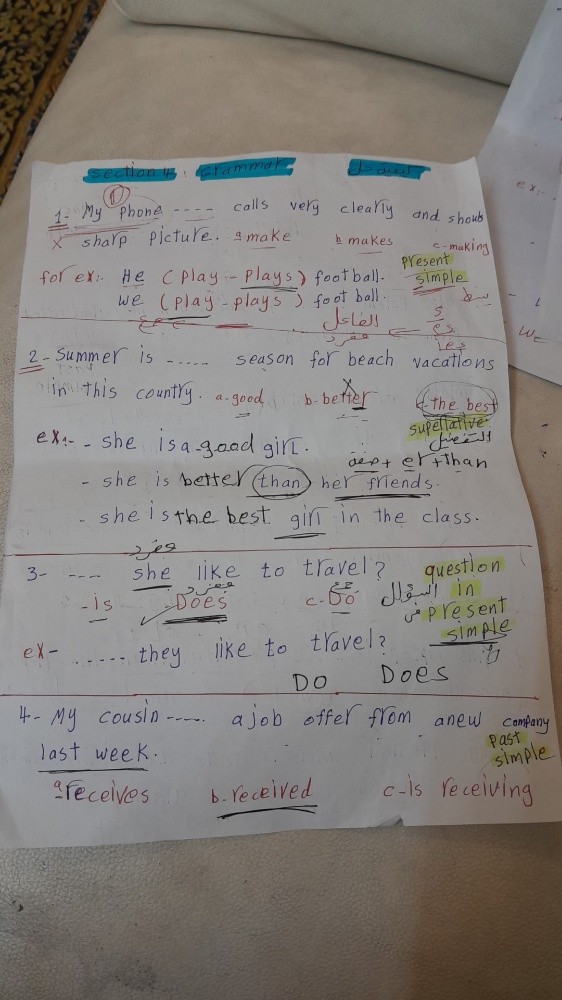 section 4: Grammar
1- My phone ---- calls very clearly and shows
x sharp picture. a make b makes c-making
present
for ex:- He (play - plays) football. simple
بسيط
we (play - plays) foot ball.
الفاعل
مفرد
s
es
ies
2- Summer is ----- season for beach vacations
in this country. a-good b-better c-the best
superlative
التفضيل
ex:- - she is a good girl.
صفة + er + than
- she is better than her friends.
- she is the best girl in the class.
مفرد
3- ---- she like to travel? question
in
-is -Does c-Do السؤال
مفرد
جمع
في present
simple
ex- ----- they like to travel?
DO DOES
4- My cousin ----. a job offer from anew company
last week.
past
simple
a-receives b-received c-is receiving